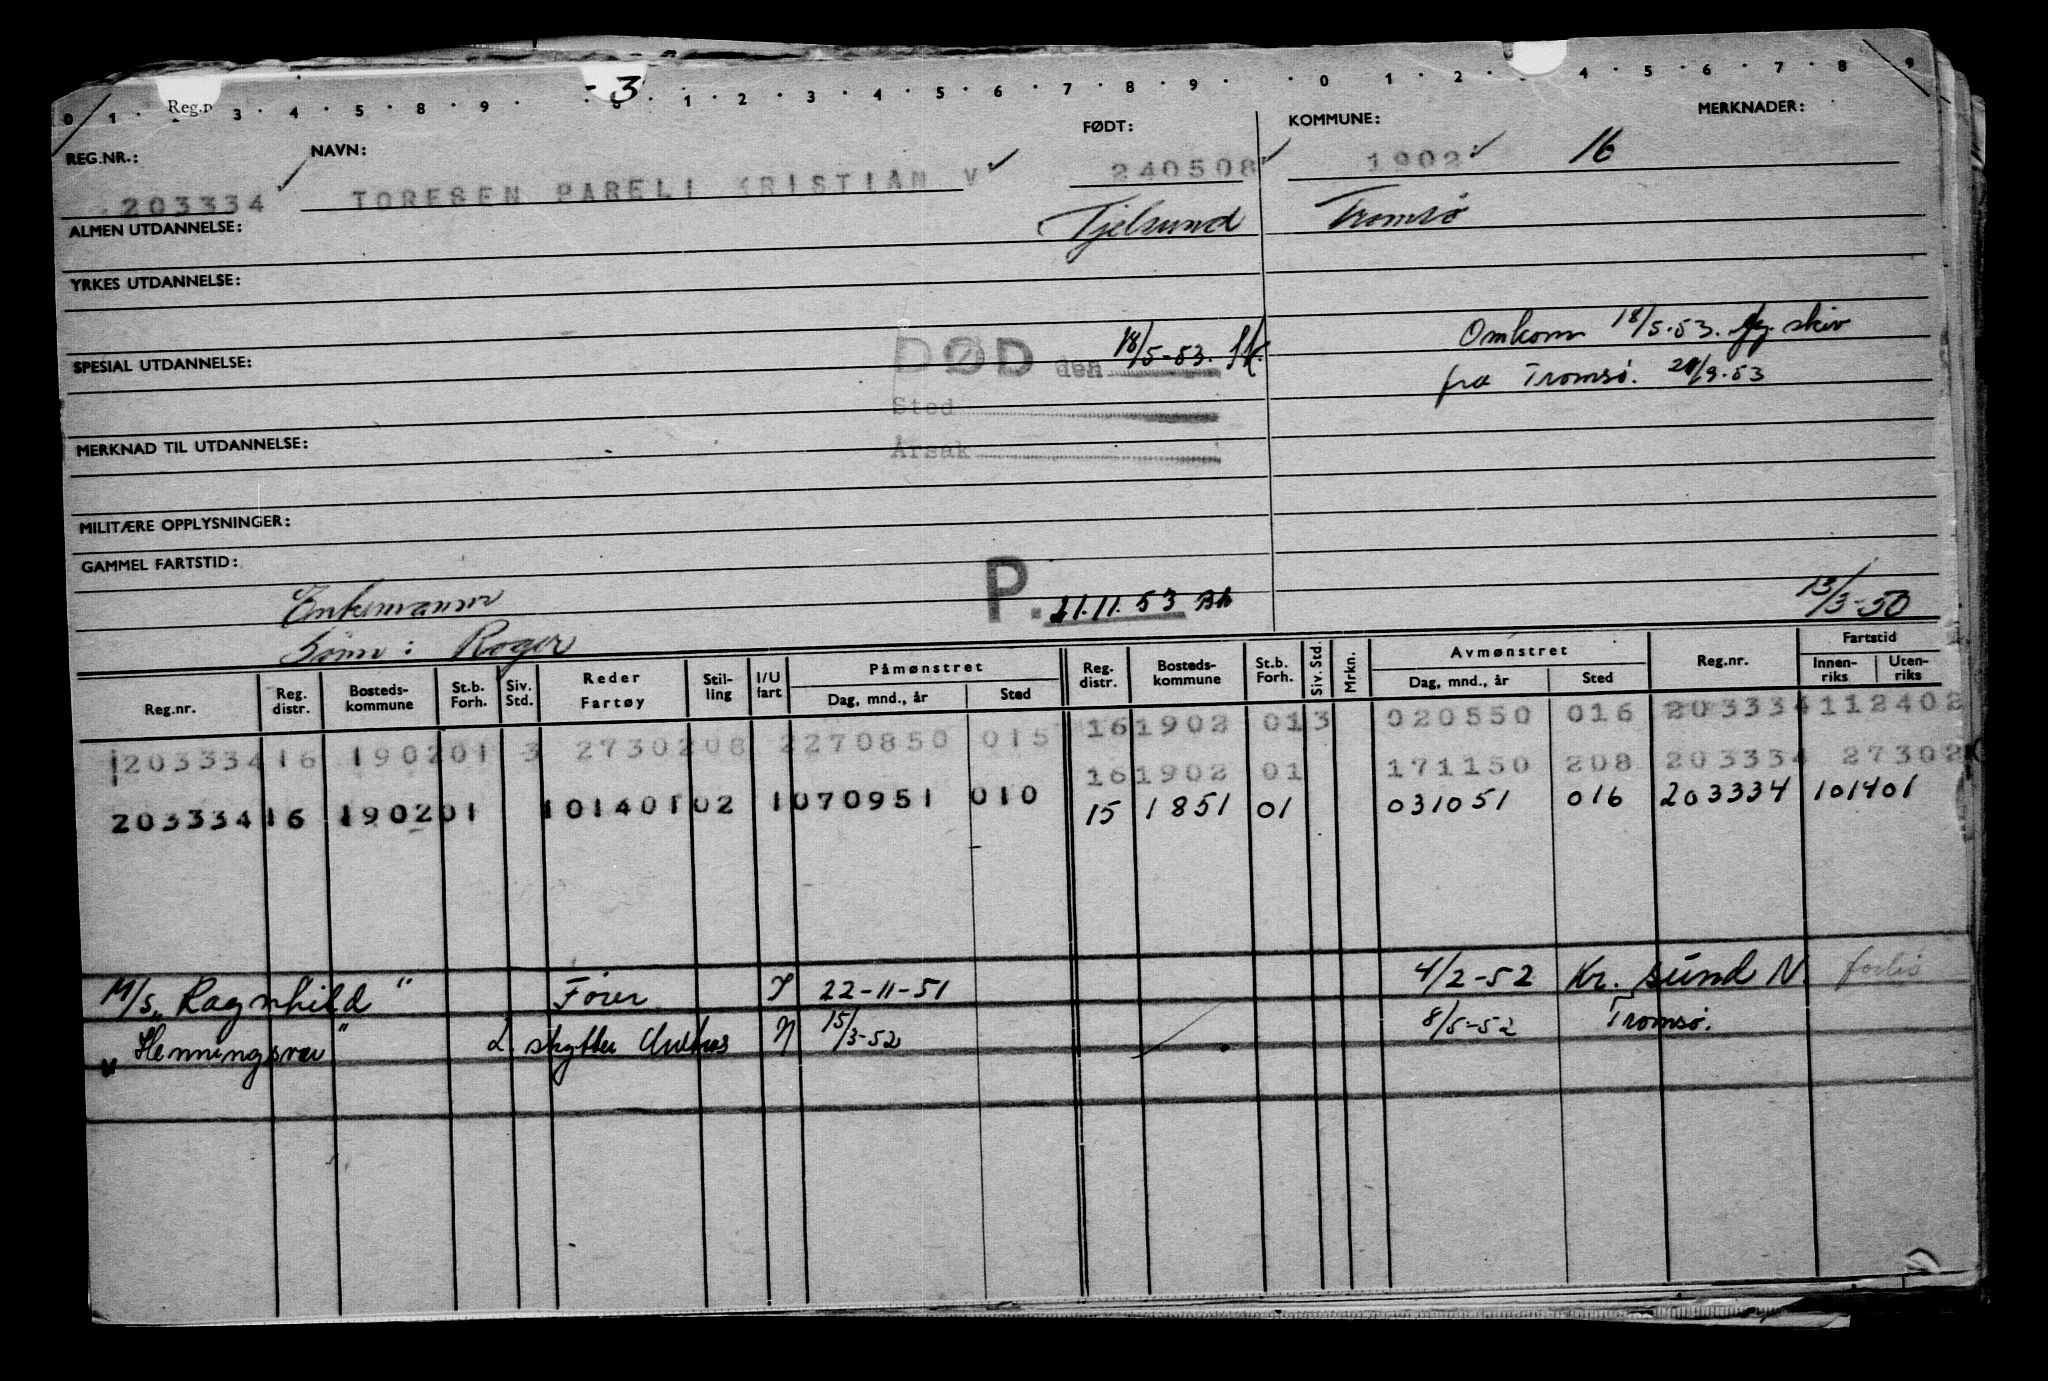 Reg.n - 3
0 1 · 3 · 4 · 5 · 8 · 9 · 0 · 1 · 2 · 3 · 4 · 5 · 6 · 7 · 8 · 9 · · 0 · 1 · 2 · 4 · 5 · 6 · 7 · 8 · 9
REG.NR.: NAVN: FØDT: KOMMUNE: MERKNADER:
203334 TORESEN PARELI KRISTIAN V 240508 1902 16
ALMEN UTDANNELSE: Tjelsund Tromsø
YRKES UTDANNELSE:
Omkom 18/5-53. skiv
SPESIAL UTDANNELSE: DØD den 18/5-53.
fra Tromsø. 21/9-53
Sted
MERKNAD TIL UTDANNELSE: Årsak
MILITÆRE OPPLYSNINGER:
GAMMEL FARTSTID:
Enkemann P. 21.11.53 13/3-50
Sønn: Roger
Reg.nr. Reg. distr. Bosteds-kommune St.b. Forh. Siv. Std. Reder Fartøy Stil-ling I/U fart Påmønstret Dag, mnd., år Sted Reg. distr. Bosteds-kommune St.b. Forh. Siv. Std. Mrkn. Avmønstret Dag, mnd., år Sted Reg.nr. Fartstid Innen-riks Uten-riks
16 1902 01 3 020550 016 203334 112402
203334 16 1902 01 3 2730208 2 270850 015 16 1902 01 171150 208 203334 27302
203334 16 1902 01 1014010 2 1 070951 010 15 1851 01 031051 016 203334 101401
M/s "Ragnhild" Fører 22-11-51 4/2-52 Kr. sund N. forlis
" Henningsvær" skytter 15/3-52 8/5-52 Tromsø.